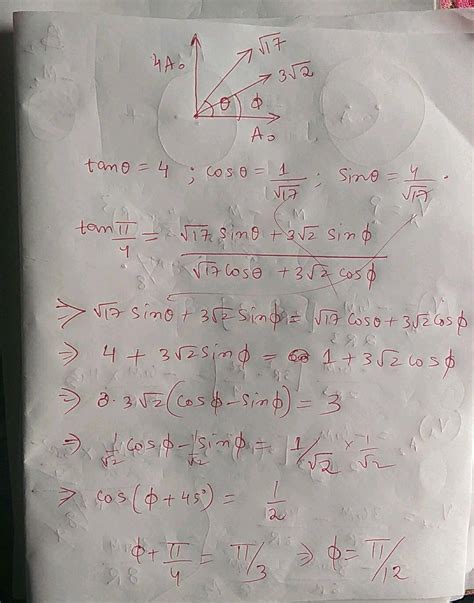 4A₀ √17
3√2
θ φ
A₀
tanθ = 4 ; cosθ = 1/√17 ; sinθ = 4/√17 .
tan π/4 = (√17 sinθ + 3√2 sinφ)/(√17 cosθ + 3√2 cosφ)
⇒ √17 sinθ + 3√2 sinφ = √17 cosθ + 3√2 cosφ
⇒ 4 + 3√2 sinφ = 1 + 3√2 cosφ
⇒ 3√2 (cosφ - sinφ) = 3
⇒ 1/√2 cosφ - 1/√2 sinφ = 1/√2 × 1/√2
⇒ cos(φ + 45°) = 1/2
φ + π/4 = π/3 ⇒ φ = π/12